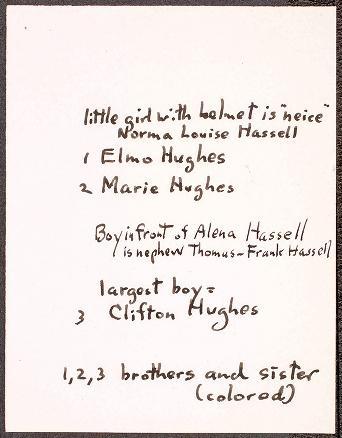 little girl with helmet is "neice"
Norma Louise Hassell
1 Elmo Hughes
2 Marie Hughes
Boy in front of Alena Hassell
is nephew Thomas - Frank Hassell
largest boy =
3 Clifton Hughes
1,2,3 brothers and sister
(colored)